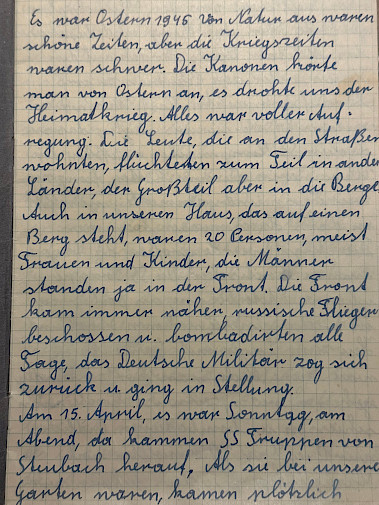 Es war Ostern 1945 von Natur aus waren
schöne Zeiten, aber die Kriegszeiten
waren schwer. Die Kanonen hörte
man von Ostern an, es drohte uns der
Heimatkrieg. Alles war voller Auf-
regung. Die Leute, die an den Straßen
wohnten, flüchteten zum Teil in ander
Länder, der Großteil aber in die Berge.
Auch in unseren Haus, das auf einen
Berg steht, waren 20 Personen, meist
Frauen und Kinder, die Männer
standen ja in der Front. Die Front
kam immer näher, russische Flieger
beschossen u. bombadirten alle
Tage, das Deutsche Militär zog sich
zurück u. ging in Stellung.
Am 15. April, es war Sonntag, am
Abend, da kammen SS Truppen von
herauf. Als sie bei unsere
Garten waren, kamen plötzlich